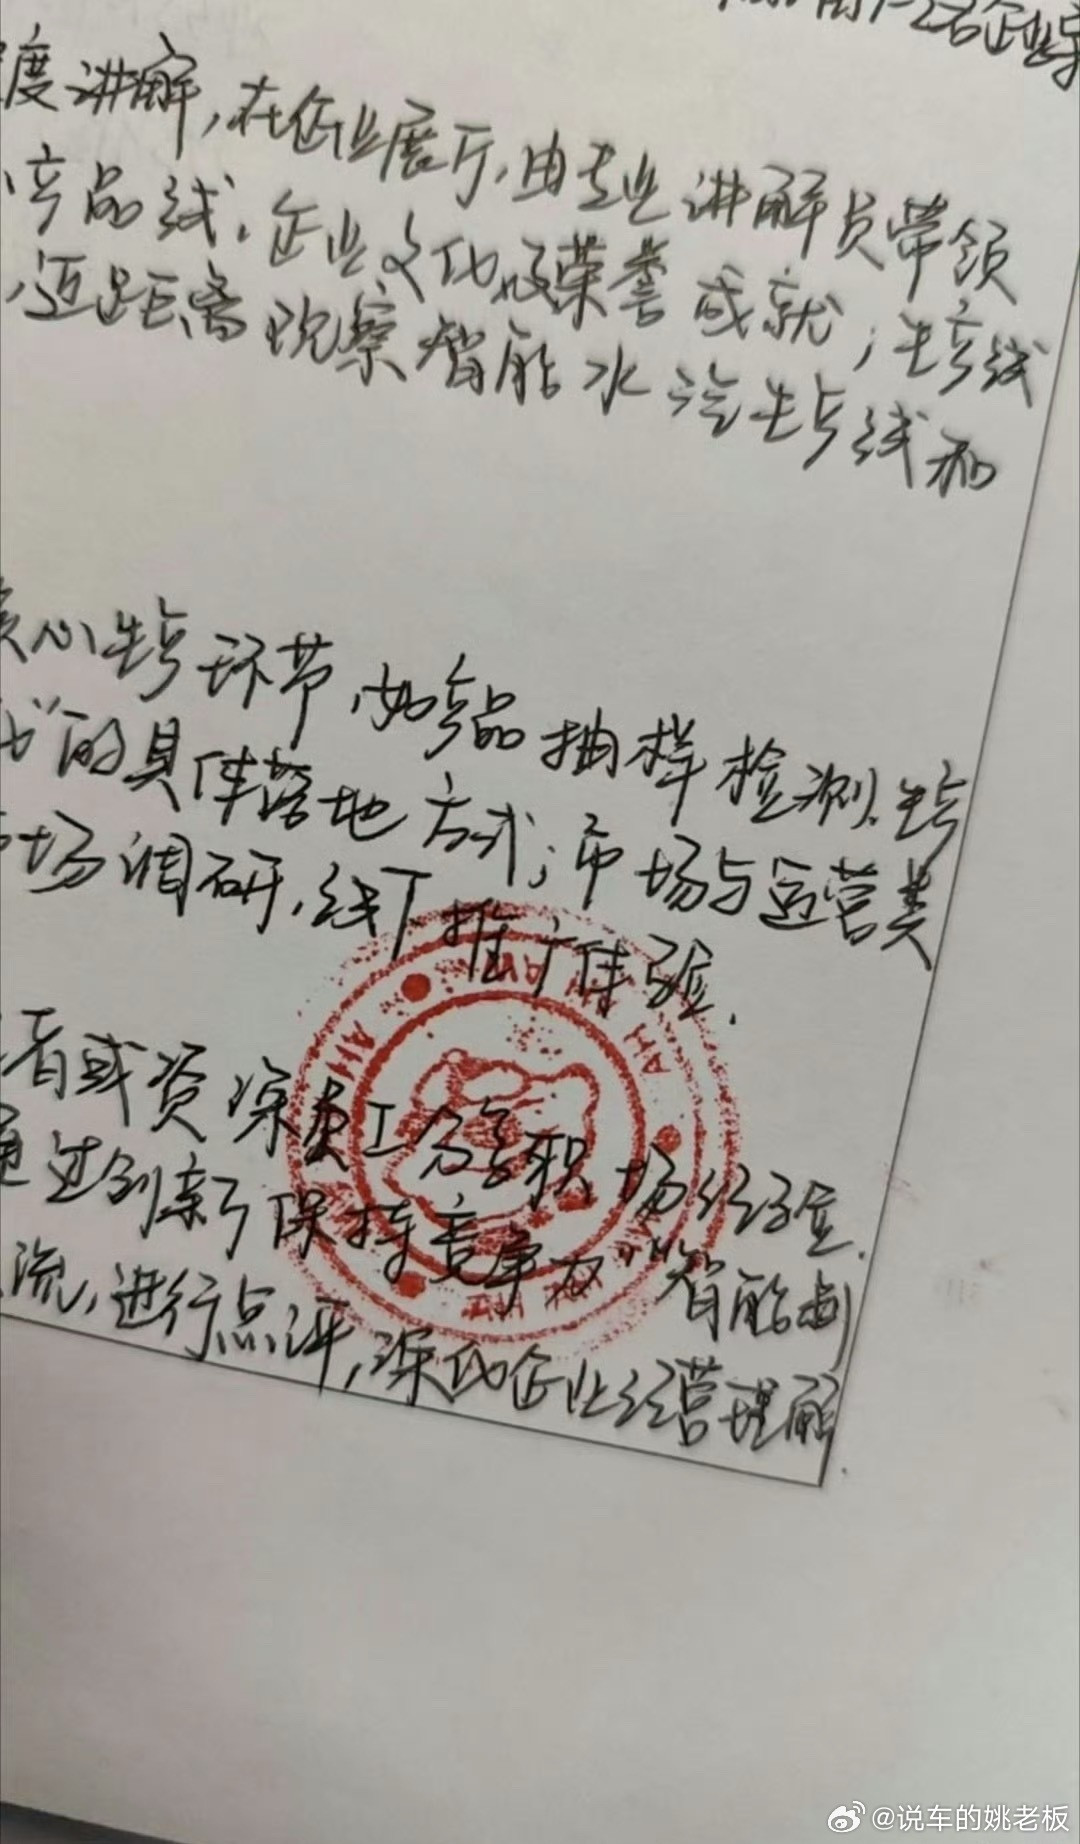 1-2名企业
度讲解,在企业展厅,由专业讲解员带领
、产品线、企业文化及荣誉成就;生产线
,近距离观察智能水洗生产线和
核心生产环节,如产品抽样检测、生产
”的具体落地方式;市场与运营类
市场调研,线下推广体验.
者或资深员工分享职场经验.
通过创新保持竞争力”“智能制
流,进行点评,深化企业经营理解.
AH
@说车的姚老板